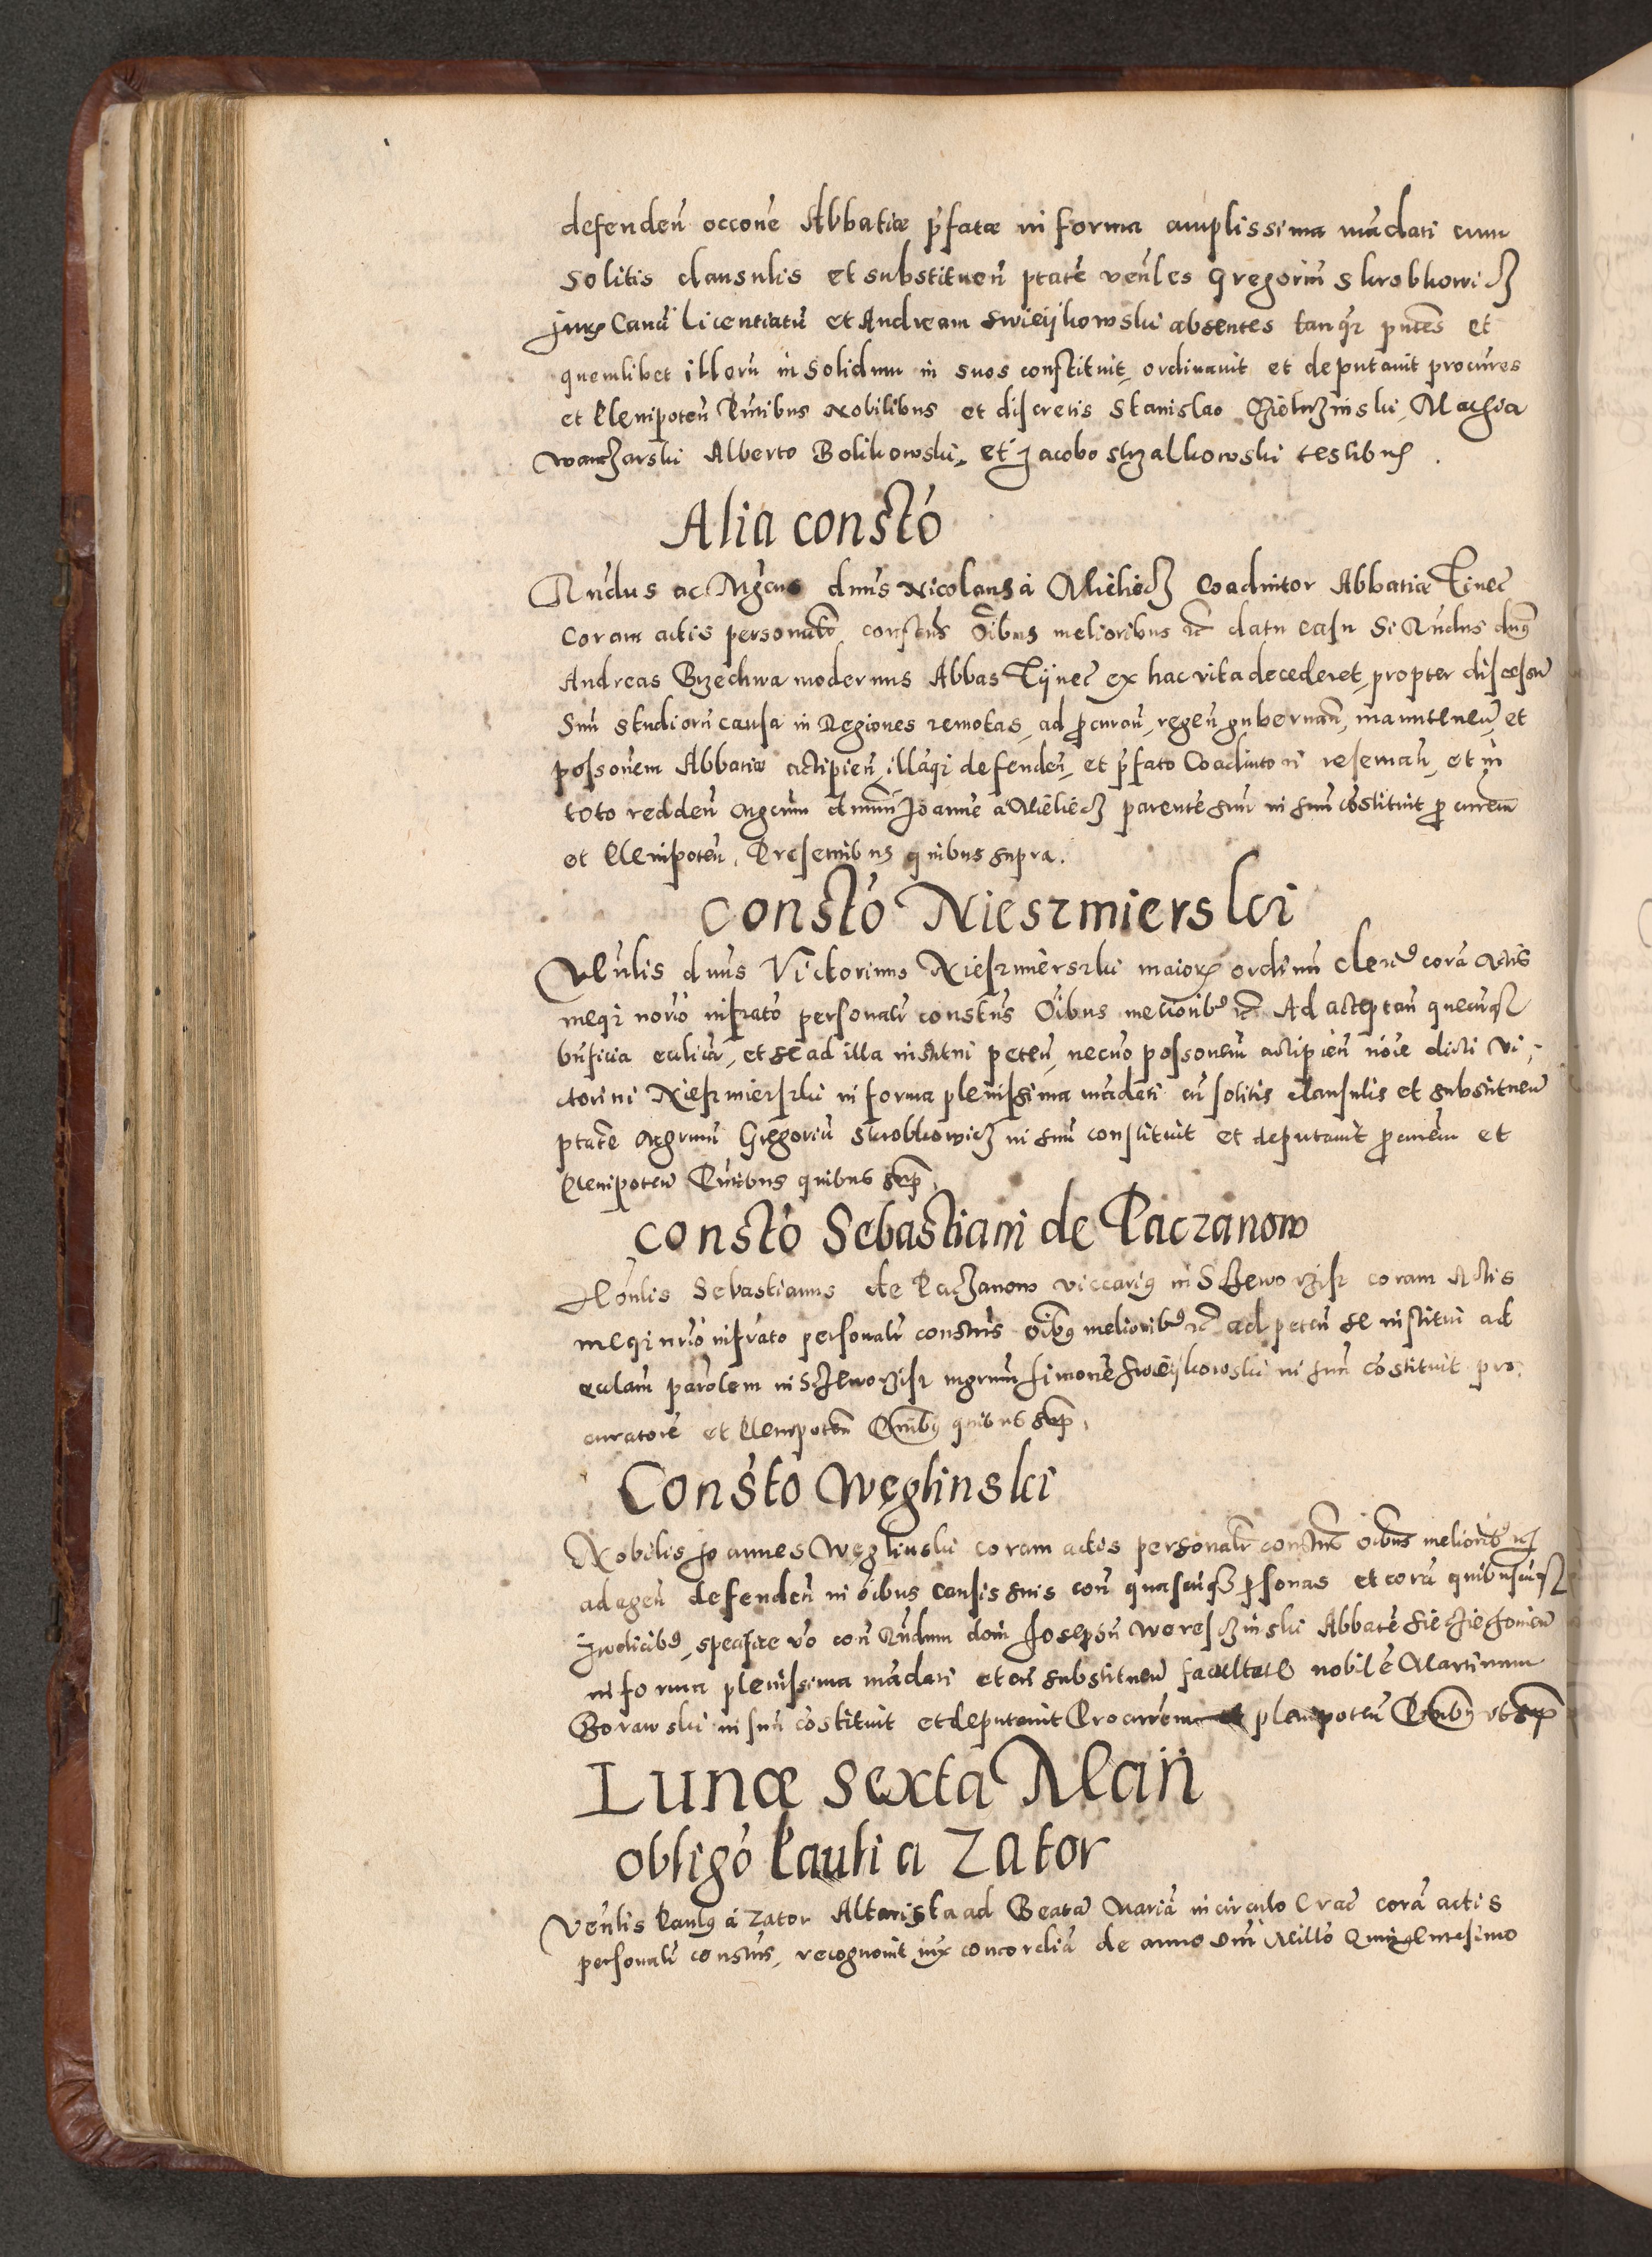 defendeñ occone Abbatiæ p̃fatæ in forma amplissima mãdati cum
solitis clausulis et substitueñ ptatẽ veñles Gregoriũ Skrobkowicz
juriũ Canõ Licentiatũ et Andream Swieijkowski absentes tanq̃ pñtes et
quemlibet illorũ in solidum in suos constituit, ordinavit et deputavit procũres
et Plenipoteñ Pñtibus Nobilibus et discretis Stanislao Mathia
Alberto Bolikowski, et Jacobo Strzalkowski testibus.
Alia constõ
Rñdus ac Mgcus dñus Nicolaus à Mieliecz Coadiutor Abbatiæ Tinec̃
coram actis personalr̃ constũs Oĩbus melioribus ec̃ datu casu Si Rñdus dñus
Andreas Brzechwa modernus Abbas Tÿnec̃ ex hac vita decederet, propter discessũ
suũ studiorũ causa in Regiones remotas, ad p̃curañ, regeñ gubernañ, manuteneñ, et
possonem Abbatiæ accipieñ, illãqz defendeñ, et p̃fato Coadiutori reservañ, et in
toto reddeñ Mgcum dñum Joannẽ a Mieliecz parentẽ suũ in suũ cõstituit p̃curem
et Plenipoteñ. Presentibus quibus supra.
Constõ Nieszmierski
Veñlis dñus Victorinus Nieszmierszki maioꝝ ordinũ clericus corã Actis
meqz norio infrãto personalr̃ constũs Oĩbus melioribus ec̃ Ad acceptañ quecũqz
bñficia ecclica, et se ad illa institui peteñ, necno possonem accipieñ nõie dicti Vi-
ctorini Nieszmierszki in forma plenissima mãdati cũ solitis clausulis et substitueñ
ptatẽ Mgrum Gregoriũ Skrobkowicz in suũ constituit et deputavit p̃curem et
Plenipoteñ Pñtibus quibus sup̃.
Constõ Sebastiani de Paczanow
Hoñlis Sebastianus de Paczanow viccarius in coram Actis
meqz nrio infrãto personalr̃ constũs oĩbus melioribus ec̃ ad peteñ se institui ad
eccłam parolem in mgrum Simonẽ Swieijkowski in suũ cõstituit pro-
curatorẽ et Plenipoteñ Pñtibus quibus sup̃.
Constõ Węglinski
Nobilis Joannes Węglinski coram actis personalr̃ constũs oĩbus melioribus ec̃
ad ageñ defendeñ in oĩbus causis suis con̄ quascũqz psonas et corã quibuscũqz
Judicibus, specifice vo con̄ Rñdum dom̃ Josephũ Wereszczinski Abbatẽ Sieciechovień
in forma plenissima mãdati et cũ substitueñ facultate nobilẽ Martinum
Borawski in suũ cõstituit et deputavit Procurrem et plenipoteñ Pñtibus ut sup̃
Lunæ sexta Maii
Obligõ Pauli a Zator
Veñlis Paulus à Zator Altarista ad Beatã Mariã in circulo Crac̃ corã actis
personalr̃ constũs, recognovit iux concordiã de anno Dñi Millõ Quingentesimo